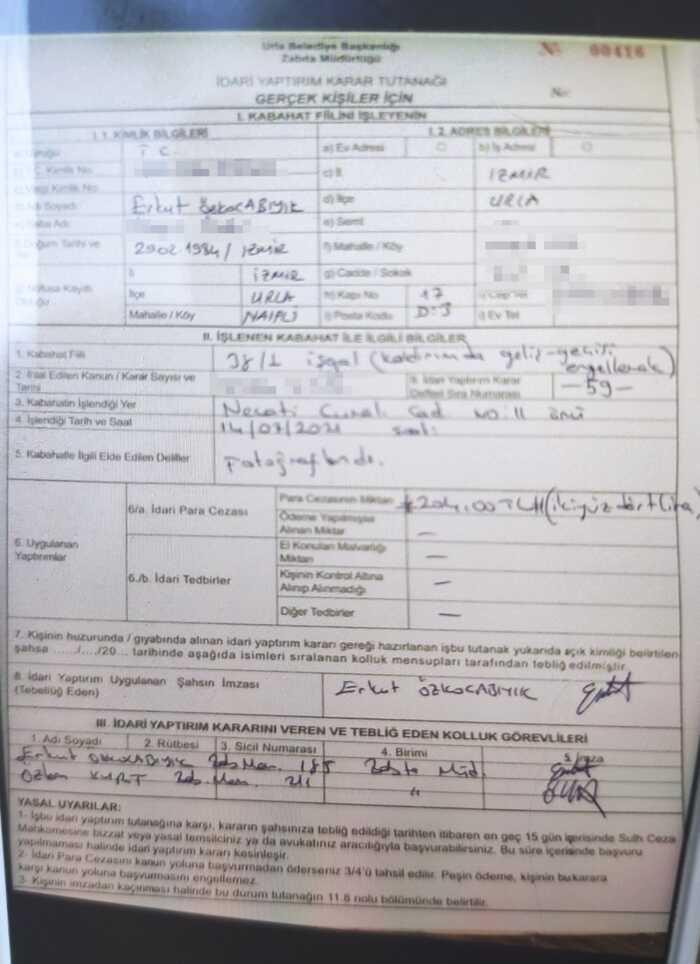 Urla Belediye Başkanlığı
Zabıta Müdürlüğü
No: 00416
İDARİ YAPTIRIM KARAR TUTANAĞI
GERÇEK KİŞİLER İÇİN
No:
I. KABAHAT FİİLİNİ İŞLEYENİN
I.1. KİMLİK BİLGİLERİ I.2. ADRES BİLGİLERİ
T C. a) Ev Adresi b) İş Adresi
Kimlik No c) İl İZMİR
Vergi Kimlik No
Adı Soyadı Erkut ÖZKOCABIYIK d) İlçe URLA
Baba Adı e) Semt
Doğum Tarihi ve 29.02.1984 / İZMİR f) Mahalle / Köy
İl İZMİR g) Cadde / Sokak
Nüfusa Kayıtlı İlçe URLA h) Kapı No 17
Mahalle / Köy NAİPLİ ı) Posta Kodu D:3 i) Ev Tel
II. İŞLENEN KABAHAT İLE İLGİLİ BİLGİLER
1. Kabahat Fiili 38/1 işgal (kaldırımda geliş-geçişi engellemek)
2. İhlal Edilen Kanun / Karar Sayısı ve Tarihi 9. İdari Yaptırım Karar Defteri Sıra Numarası -59-
3. Kabahatin İşlendiği Yer Necati Cad. no:11 önü
4. İşlendiği Tarih ve Saat 14/07/2021 saat:
5. Kabahatle İlgili Elde Edilen Deliller Fotoğraflandı.
6. Uygulanan Yaptırımlar
6/a. İdari Para Cezası Para Cezasının Miktarı 204,00 TL (ikiyüzdört lira)
Ödeme Yapılmışsa Alınan Miktar —
6./b. İdari Tedbirler El Konulan Malvarlığı Miktarı —
Kişinin Kontrol Altına Alınıp Alınmadığı —
Diğer Tedbirler —
7. Kişinin huzurunda / gıyabında alınan idari yaptırım kararı gereği hazırlanan işbu tutanak yukarıda açık kimliği belirtilen
şahsa ....../..../20... tarihinde aşağıda isimleri sıralanan kolluk mensupları tarafından tebliğ edilmiştir.
8. İdari Yaptırım Uygulanan Şahsın İmzası
(Tebellüğ Eden) Erkut ÖZKOCABIYIK
III. İDARİ YAPTIRIM KARARINI VEREN VE TEBLİĞ EDEN KOLLUK GÖREVLİLERİ
1. Adı Soyadı 2. Rütbesi 3. Sicil Numarası 4. Birimi 5. İmza
Erkut ÖZKOCABIYIK Zab. Mem. 185 Zabıta Müd.
Özlem KURT Zab. Mem. 211 "
YASAL UYARILAR:
1- İşbu idari yaptırım tutanağına karşı, kararın şahsınıza tebliğ edildiği tarihten itibaren en geç 15 gün içerisinde Sulh Ceza
Mahkemesine bizzat veya yasal temsilciniz ya da avukatınız aracılığıyla başvurabilirsiniz. Bu süre içerisinde başvuru
yapılmaması halinde idari yaptırım kararı kesinleşir.
2- İdari Para Cezasını kanun yoluna başvurmadan öderseniz 3/4'ü tahsil edilir. Peşin ödeme, kişinin bu karara
karşı kanun yoluna başvurmasını engellemez.
3- Kişinin imzadan kaçınması halinde bu durum tutanağın 11.6 nolu bölümünde belirtilir.